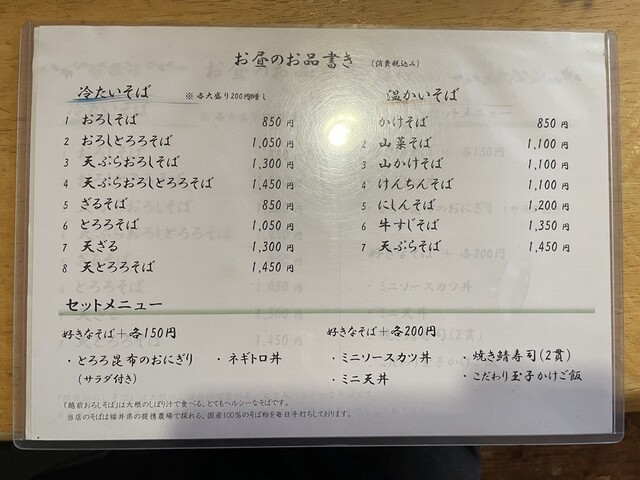 お昼のお品書き (消費税込み)
冷たいそば ※各大盛り200円増し
1 おろしそば 850円
2 おろしとろろそば 1,050円
3 天ぷらおろしそば 1,300円
4 天ぷらおろしとろろそば 1,450円
5 ざるそば 850円
6 とろろそば 1,050円
7 天ざる 1,300円
8 天とろろそば 1,450円
温かいそば
かけそば 850円
2 山菜そば 1,100円
3 山かけそば 1,100円
4 けんちんそば 1,100円
5 にしんそば 1,200円
6 牛すじそば 1,350円
7 天ぷらそば 1,450円
セットメニュー
好きなそば+各150円
・とろろ昆布のおにぎり
(サラダ付き)
・ネギトロ丼
好きなそば+各200円
・ミニソースカツ丼
・ミニ天丼
・焼き鯖寿司(2貫)
・こだわり玉子かけご飯
「越前おろしそば」は大根のしぼり汁で食べる、とてもヘルシーなそばです。
当店のそばは福井県の提携農場で採れる、国産100%のそば粉を毎日手打ちしております。